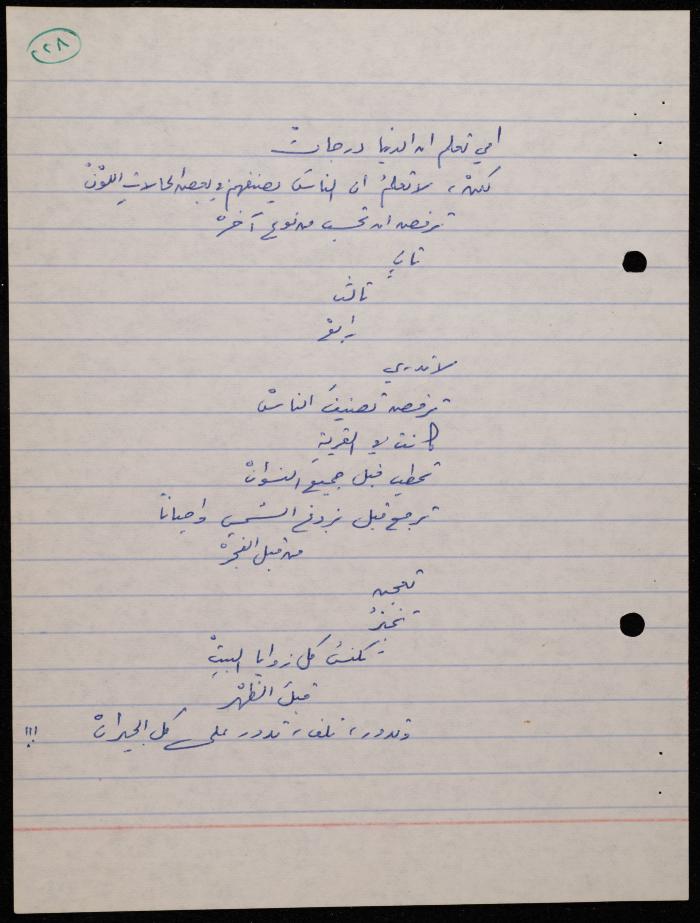 ٢٢٨
امي تعلم ان الدنيا درجاتْ
لكنْ، لا تعلمُ ان الناسَ يصنفهم في بعض الحالاتِ اللوْنْ
ترفض ان تحسب من نوع آخرْ
ثانٍ
ثالث
رابعْ
لا تدري
ترفض تصنيفَ الناسْ
كانت في القريةِ
تحطب قبل جميع النسوانْ
ترجع قبل بزوغ الشمسِ واحياناً
من قبل الفجرْ
تعجن
تخبزُ
تكنسُ كل زوايا البيتْ
قبلَ الظهْر
وتدور، تلف، تدور على كل الجيرانْ !!!